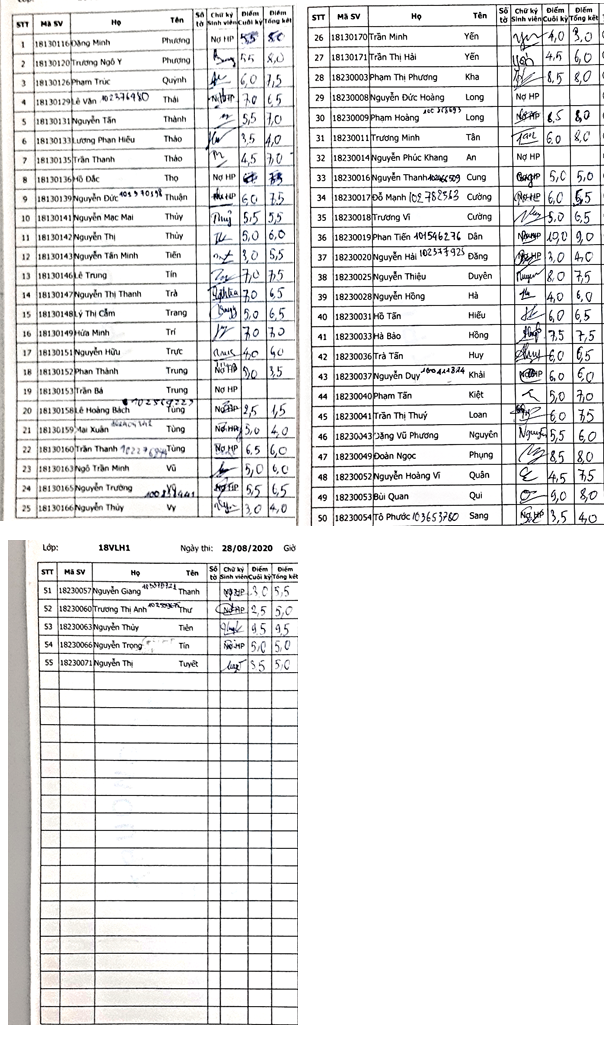 STT Mã SV Họ Tên Số tờ Chữ ký Sinh viên Điểm Cuối kỳ Điểm Tổng kết
1 18130116 Đặng Minh Phương Nợ HP 5,5
2 18130120 Trương Ngô Ý Phương 5,5
3 18130126 Phạm Trúc Quỳnh 6,0 7,5
4 18130129 Lê Văn 102376980 Thái Nợ HP 7,0 6,5
5 18130131 Nguyễn Tấn Thành 5,5 7,0
6 18130133 Lương Phan Hiếu Thảo 3,5 4,0
7 18130135 Trần Thanh Thảo 4,5 7,0
8 18130136 Hồ Đắc Thọ Nợ HP
9 18130139 Nguyễn Đức Thuận Nợ HP 6,0 7,5
10 18130141 Nguyễn Mạc Mai Thủy Thuỷ 5,5 5,5
11 18130142 Nguyễn Thị Thủy 5,0 6,0
12 18130143 Nguyễn Tấn Minh Tiến 3,0 5,5
13 18130146 Lê Trung Tín 7,0 7,5
14 18130147 Nguyễn Thị Thanh Trà 7,0 6,5
15 18130148 Lý Thị Cẩm Trang 5,0 6,5
16 18130149 Hứa Minh Trí 7,0 7,0
17 18130151 Nguyễn Hữu Trực 4,0 4,0
18 18130152 Phan Thành Trung Nợ HP 3,5
19 18130153 Trần Bá Trung Nợ HP
20 18130158 Lê Hoàng Bách Tùng Nợ HP 2,5 1,5
21 18130159 Mai Xuân Tùng Nợ HP 5,0 4,0
22 18130160 Trần Thanh Tùng Nợ HP 6,5 6,0
23 18130163 Ngô Trần Minh Vũ 5,0 6,0
24 18130165 Nguyễn Trường Vũ Nợ HP 5,5 6,5
25 18130166 Nguyễn Thủy Vy 3,0 4,0
STT Mã SV Họ Tên Số tờ Chữ ký Sinh viên Điểm Cuối kỳ Điểm Tổng kết
26 18130170 Trần Minh Yến 4,0 3,0
27 18130171 Trần Thị Hải Yến 4,5 6,0
28 18230003 Phạm Thị Phương Kha 8,5 8,0
29 18230008 Nguyễn Đức Hoàng Long Nợ HP
30 18230009 Phạm Hoàng Long Nợ HP 8,0
31 18230011 Trương Minh Tân Tân 6,0 8,0
32 18230014 Nguyễn Phúc Khang An Nợ HP
33 18230016 Nguyễn Thanh Cung 5,0 5,0
34 18230017 Đỗ Mạnh 102782563 Cường Nợ HP 6,0 5,5
35 18230018 Trương Vĩ Cường 5,0 6,5
36 18230019 Phan Tiến 101546276 Dân Nợ HP 10,0 9,0
37 18230020 Nguyễn Hải Đăng Nợ HP 3,0 4,0
38 18230025 Nguyễn Thiệu Duyên 8,0 7,5
39 18230028 Nguyễn Hồng Hà 4,0 6,0
40 18230031 Hồ Tấn Hiếu 6,0 6,5
41 18230033 Hà Bảo Hồng 7,5 7,5
42 18230036 Trà Tấn Huy 6,0 6,5
43 18230037 Nguyễn Duy Khải Nợ HP 6,0 6,0
44 18230040 Phạm Tấn Kiệt 5,0 7,0
45 18230041 Trần Thị Thuý Loan 6,0 7,5
46 18230043 Đặng Vũ Phương Nguyên 5,5 6,0
47 18230049 Đoàn Ngọc Phụng 8,5 8,0
48 18230052 Nguyễn Hoàng Vĩ Quân 4,5 7,5
49 18230053 Bùi Quan Qui 9,0 8,0
50 18230054 Tô Phước 103653780 Sang Nợ HP 3,5 4,0
Lớp: 18VLH1 Ngày thi: 28/08/2020 Giờ
STT Mã SV Họ Tên Số tờ Chữ ký Sinh viên Điểm Cuối kỳ Điểm Tổng kết
51 18230057 Nguyễn Giang Thanh Nợ HP 3,0 5,5
52 18230060 Trương Thị Anh Thư Nợ HP 2,5 5,0
53 18230063 Nguyễn Thủy Tiên 9,5 9,5
54 18230066 Nguyễn Trọng Tín Nợ HP 5,0 5,0
55 18230071 Nguyễn Thị Tuyết 3,5 5,0